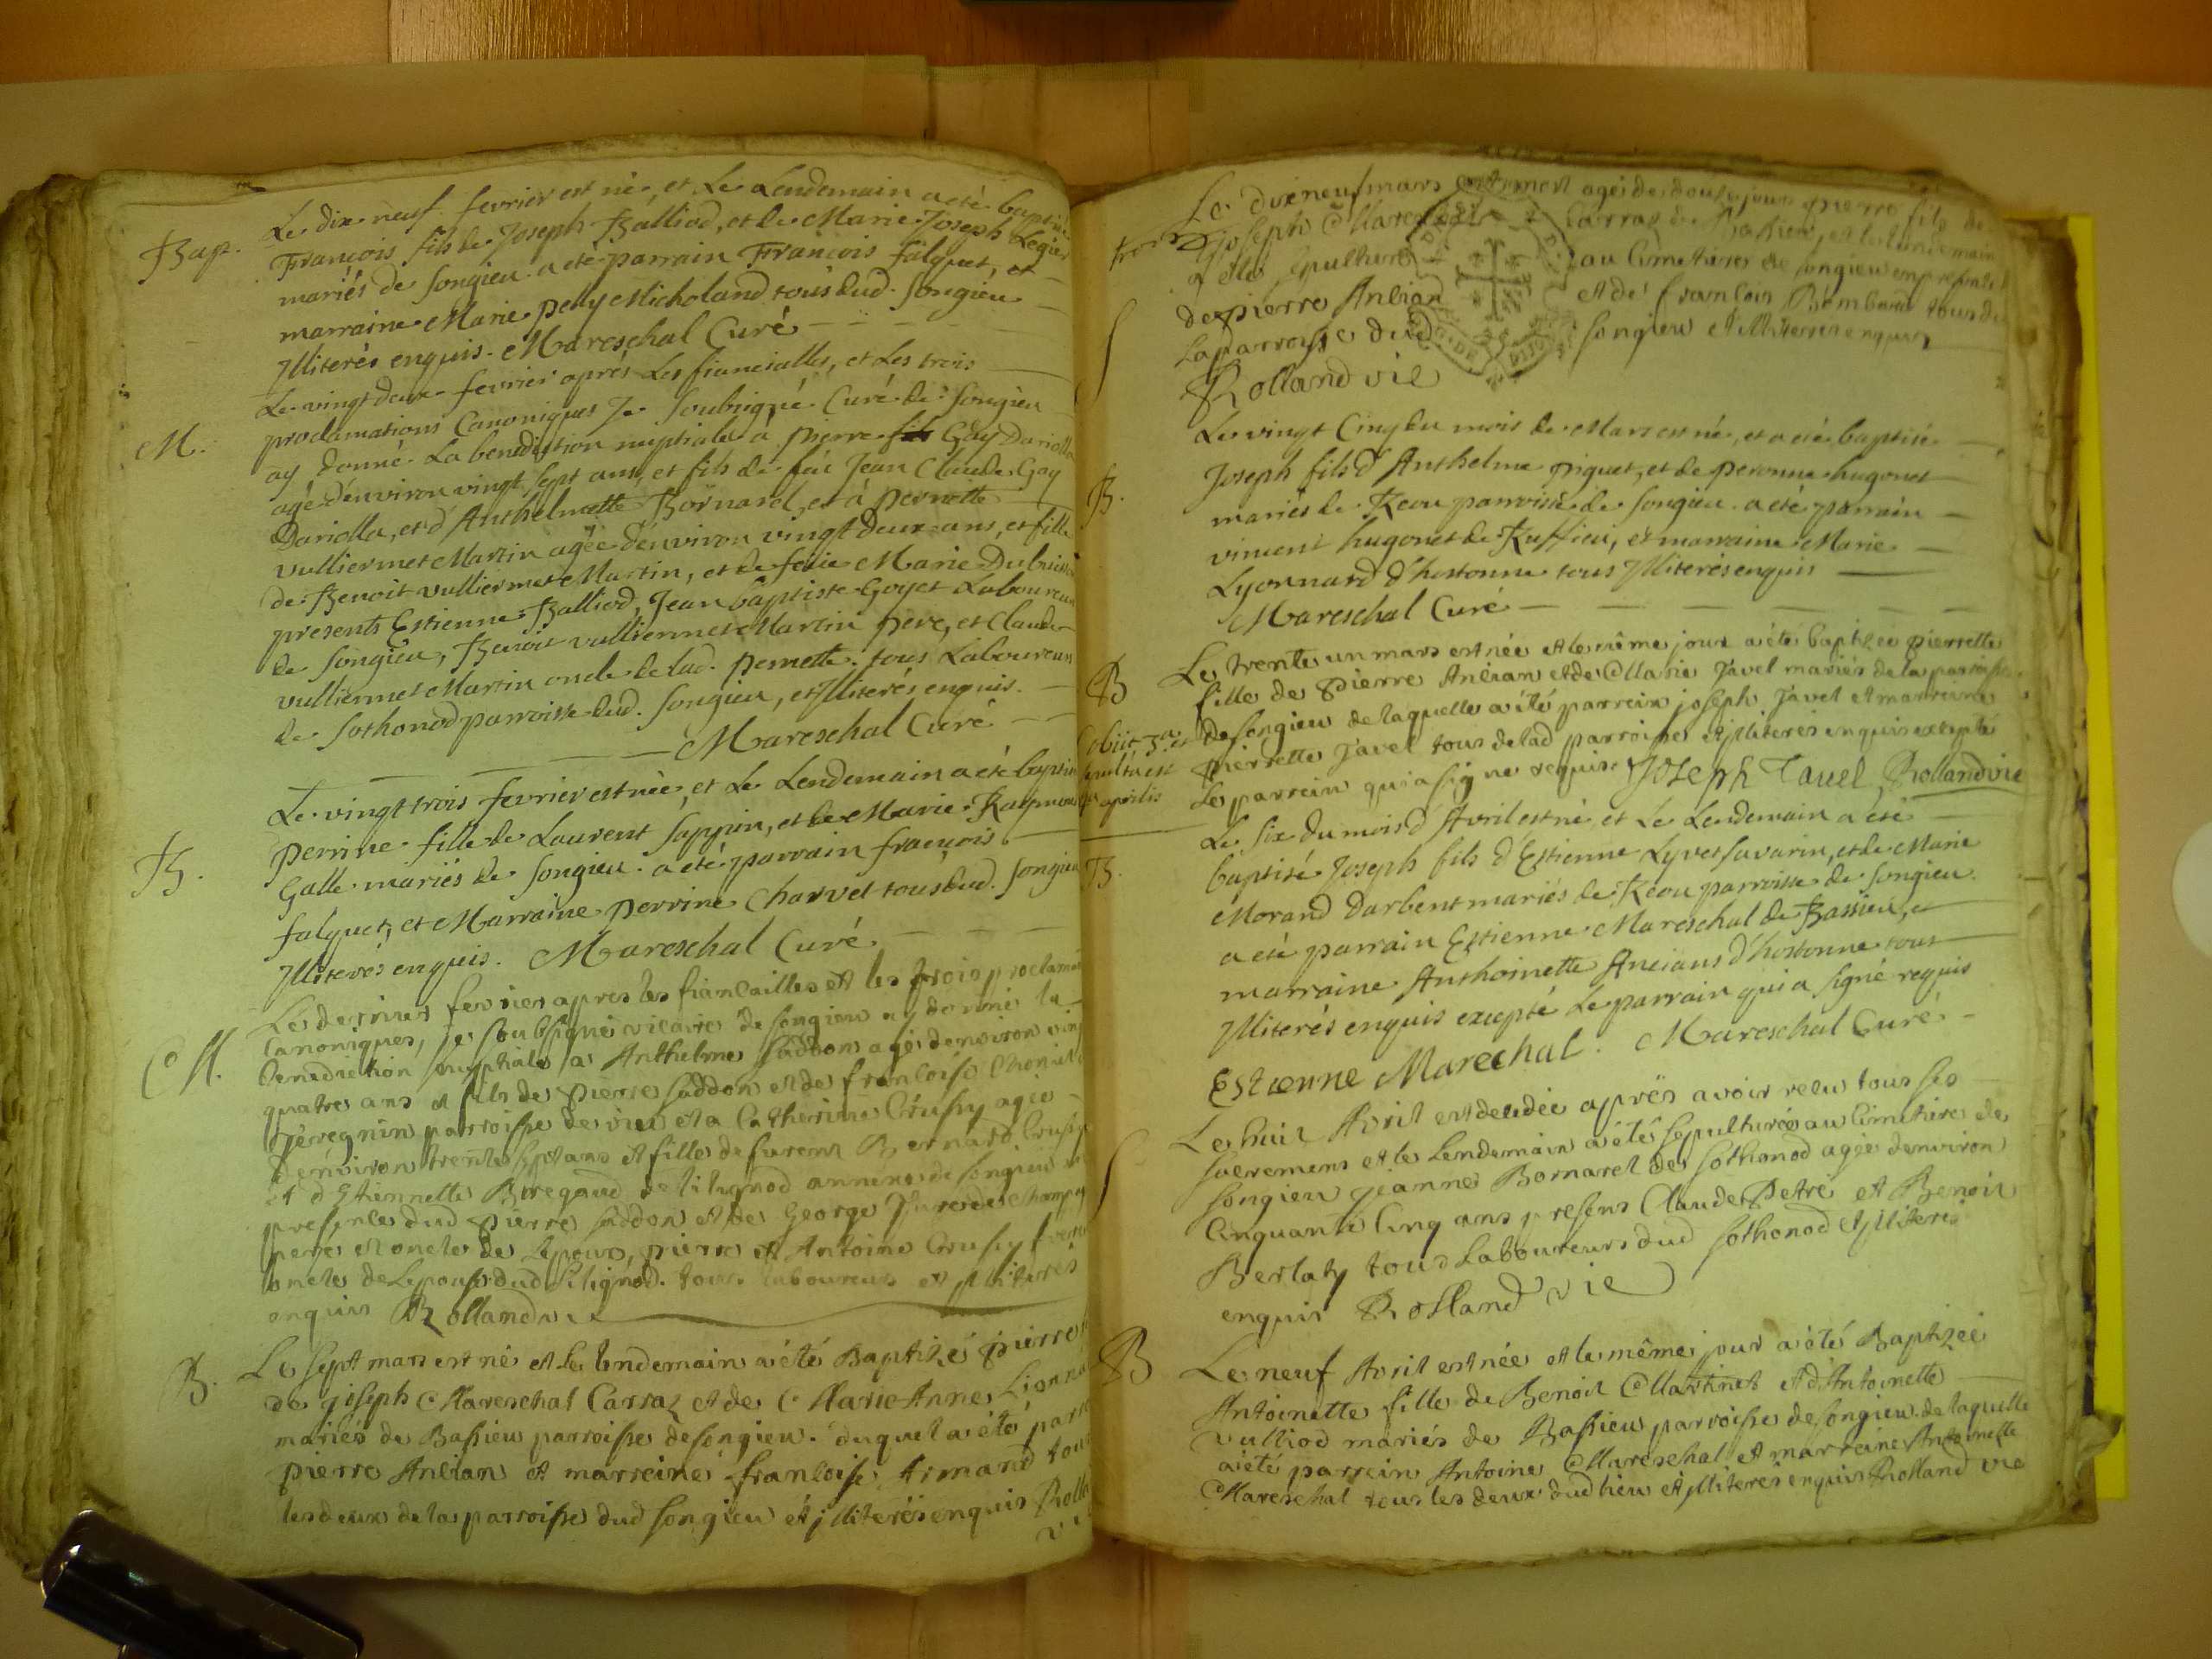 Bap.
Le dix neuf fevrier est né, et Le Lendemain a eté baptisé
François fils de Joseph Balliod, et de Marie Joseph Legier
mariés de Songieu. a eté parrain François falquet, et
marraine Marie pety Micholand tous dud. Songieu
Jlliterés enquis. Mareschal Curé
M.
Le vingt deux fevrier aprés Les fiancialles, et Les trois
proclamations Canoniques Je Soubsigné Curé de Songieu
ay donné La benediction nuptiale à Pierre Gay Dariolla
agé d'environ vingt sept ans, et fils de feu Jean Claude Gay
Dariolla, et d'Anthelmette Bornarel, et à Pernette
vulliermet Martin agée d'environ vingt deux ans, et fille
de Benoit vulliermet Martin, et de feüe Marie Dubuisson
presents Estienne Balliod, Jean baptiste Goyet Laboureurs
de Songieu, Benoit vulliermet Martin pere, et Claude
vulliermet Martin oncle de lad. Pernette. tous Laboureurs
de Sothonod parroisse dud. Songieu, et Jlliterés enquis.
Mareschal Curé
B.
Le vingt trois fevrier est née, et Le Lendemain a eté baptisée
Perrine fille de Laurent Sappin, et de Marie
Galle mariés de Songieu. a eté parrain françois
falquet, et Marraine Perrine Charvet tous dud. Songieu
Jlliterés enquis. Mareschal Curé
M.
Le dernier fevrier apres les fiancailles et les trois proclama
Canoniques, je soubsigné vicaire de songieu ay donné la
benediction nuptiale a Anthelme Saddon agé denviron vin
quatre ans et fils de pierre Saddon et de francoise
parroisse de vieu et a Catherine Crussy agée
denviron trente sept ans et fille de furent Bernard
et d Etiennette de litignod annexe de songieu
presents dud pierre Saddon et de George
pere et oncle de Lepoux, pierre et Antoine Crussy
oncle de Lepouse dud Litignod. tous laboureurs et jlliteres
enquis Rolland vic
B.
Le sept mars est né et le lendemain a été Baptizé pierre
de joseph Mareschal Carraz et de Marie Anne
mariés de Bassieu parroisse de songieu. duquel a été parr
pierre Ancian et marreine francoise Armand tous
les deux de la parroisse dud songieu et jlliterés enquis Rolla
vi
Le dix neuf mars est mort agé de douze jours pierre fils de
joseph Mareschal Carraz de Bassieu, et le lendemain
a été sepulturé au Cimetiere de songieu en presence
de pierre Ancian et de francois tous de
La parroisse dud songieu et jlliterés enquis
Rolland vic
B.
Le vingt Cinq du mois de Mars est né, et a eté baptisé
Joseph fils d'Anthelme piquet, et de peronne hugonet
mariés de Reou parroisse de Songieu. a eté parrain
vincent hugonet de Ruffieu, et marraine Marie
Lyonnard d'hostonne tous Jlliterés enquis
Mareschal Curé
B
Le trente un mars est née et le même jour a été baptizée pierrette
fille de pierre Ancian et de Marie Javel mariés de la parroisse
de songieu de laquelle a été parrein joseph Javel et marreine
pierrette Javel tous de lad parroisse et jlliterés enquis excepté
Le parrein qui a signé requis. Joseph Tavel Rolland vic
obiit
sepulta est
aprilis
B.
Le six du mois d'Avril est né et Le Lendemain a eté
baptisé Joseph fils d'Estienne Lyvet Savarin, et de Marie
Morand Darbent mariés de Reou parroisse de Songieu.
a eté parrain Estienne Mareschal de Bassieu, et
marraine Anthoinette Ancians d'hostonne tous
Jlliterés enquis excepté Le parrain qui a signé requis
Estienne Marechal. Mareschal Curé
Le huit Avril est decedée aprés avoir recu tous ses
sacremens et le Lendemain a été sepulturée au Cimetiere de
songieu jeanne Bornarel de sothonod agée denviron
Cinquante Cinq ans presens Claude Petre et Benoit
Berlaty tous Laboureurs dud sothonod et jlliteres
enquis Rolland vic
B
Le neuf Avril est née et le même jour a été Baptizée
Antoinette fille de Benoit Martinet et d'Antoinette
vulliod mariés de Bassieu parroisse de songieu. de laquelle
a été parrein Antoine Mareschal et marreine Antoinette
Mareschal tous les deux dud lieu et jlliteres enquis Rolland vic